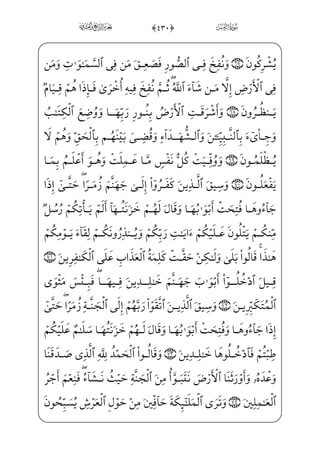 ﴿٤٣٠﴾
يُشْرِكُونَ ۝ وَنُفِخَ فِى ٱلصُّورِ فَصَعِقَ مَن فِى ٱلسَّمَٰوَٰتِ وَمَن
فِى ٱلْأَرْضِ إِلَّا مَن شَآءَ ٱللَّهُ ۖ ثُمَّ نُفِخَ فِيهِ أُخْرَىٰ فَإِذَا هُمْ قِيَامٌ
يَنظُرُونَ ۝ وَأَشْرَقَتِ ٱلْأَرْضُ بِنُورِ رَبِّهَا وَوُضِعَ ٱلْكِتَٰبُ
وَجِا۟ىٓءَ بِٱلنَّبِيِّۦنَ وَٱلشُّهَدَآءِ وَقُضِىَ بَيْنَهُم بِٱلْحَقِّ وَهُمْ لَا
يُظْلَمُونَ ۝ وَوُفِّيَتْ كُلُّ نَفْسٍ مَّا عَمِلَتْ وَهُوَ أَعْلَمُ بِمَا
يَفْعَلُونَ ۝ وَسِيقَ ٱلَّذِينَ كَفَرُوٓا۟ إِلَىٰ جَهَنَّمَ زُمَرًا ۖ حَتَّىٰٓ إِذَا
جَآءُوهَا فُتِحَتْ أَبْوَٰبُهَا وَقَالَ لَهُمْ خَزَنَتُهَآ أَلَمْ يَأْتِكُمْ رُسُلٌ
مِّنكُمْ يَتْلُونَ عَلَيْكُمْ ءَايَٰتِ رَبِّكُمْ وَيُنذِرُونَكُمْ لِقَآءَ يَوْمِكُمْ
هَٰذَا ۚ قَالُوا۟ بَلَىٰ وَلَٰكِنْ حَقَّتْ كَلِمَةُ ٱلْعَذَابِ عَلَى ٱلْكَٰفِرِينَ
۝ قِيلَ ٱدْخُلُوٓا۟ أَبْوَٰبَ جَهَنَّمَ خَٰلِدِينَ فِيهَا ۖ فَبِئْسَ مَثْوَى
ٱلْمُتَكَبِّرِينَ ۝ وَسِيقَ ٱلَّذِينَ ٱتَّقَوْا۟ رَبَّهُمْ إِلَى ٱلْجَنَّةِ زُمَرًا ۖ حَتَّىٰٓ
إِذَا جَآءُوهَا وَفُتِحَتْ أَبْوَٰبُهَا وَقَالَ لَهُمْ خَزَنَتُهَا سَلَٰمٌ عَلَيْكُمْ
طِبْتُمْ فَٱدْخُلُوهَا خَٰلِدِينَ ۝ وَقَالُوا۟ ٱلْحَمْدُ لِلَّهِ ٱلَّذِى صَدَقَنَا
وَعْدَهُۥ وَأَوْرَثَنَا ٱلْأَرْضَ نَتَبَوَّأُ مِنَ ٱلْجَنَّةِ حَيْثُ نَشَآءُ ۖ فَنِعْمَ أَجْرُ
ٱلْعَٰمِلِينَ ۝ وَتَرَى ٱلْمَلَٰٓئِكَةَ حَآفِّينَ مِنْ حَوْلِ ٱلْعَرْشِ يُسَبِّحُونَ